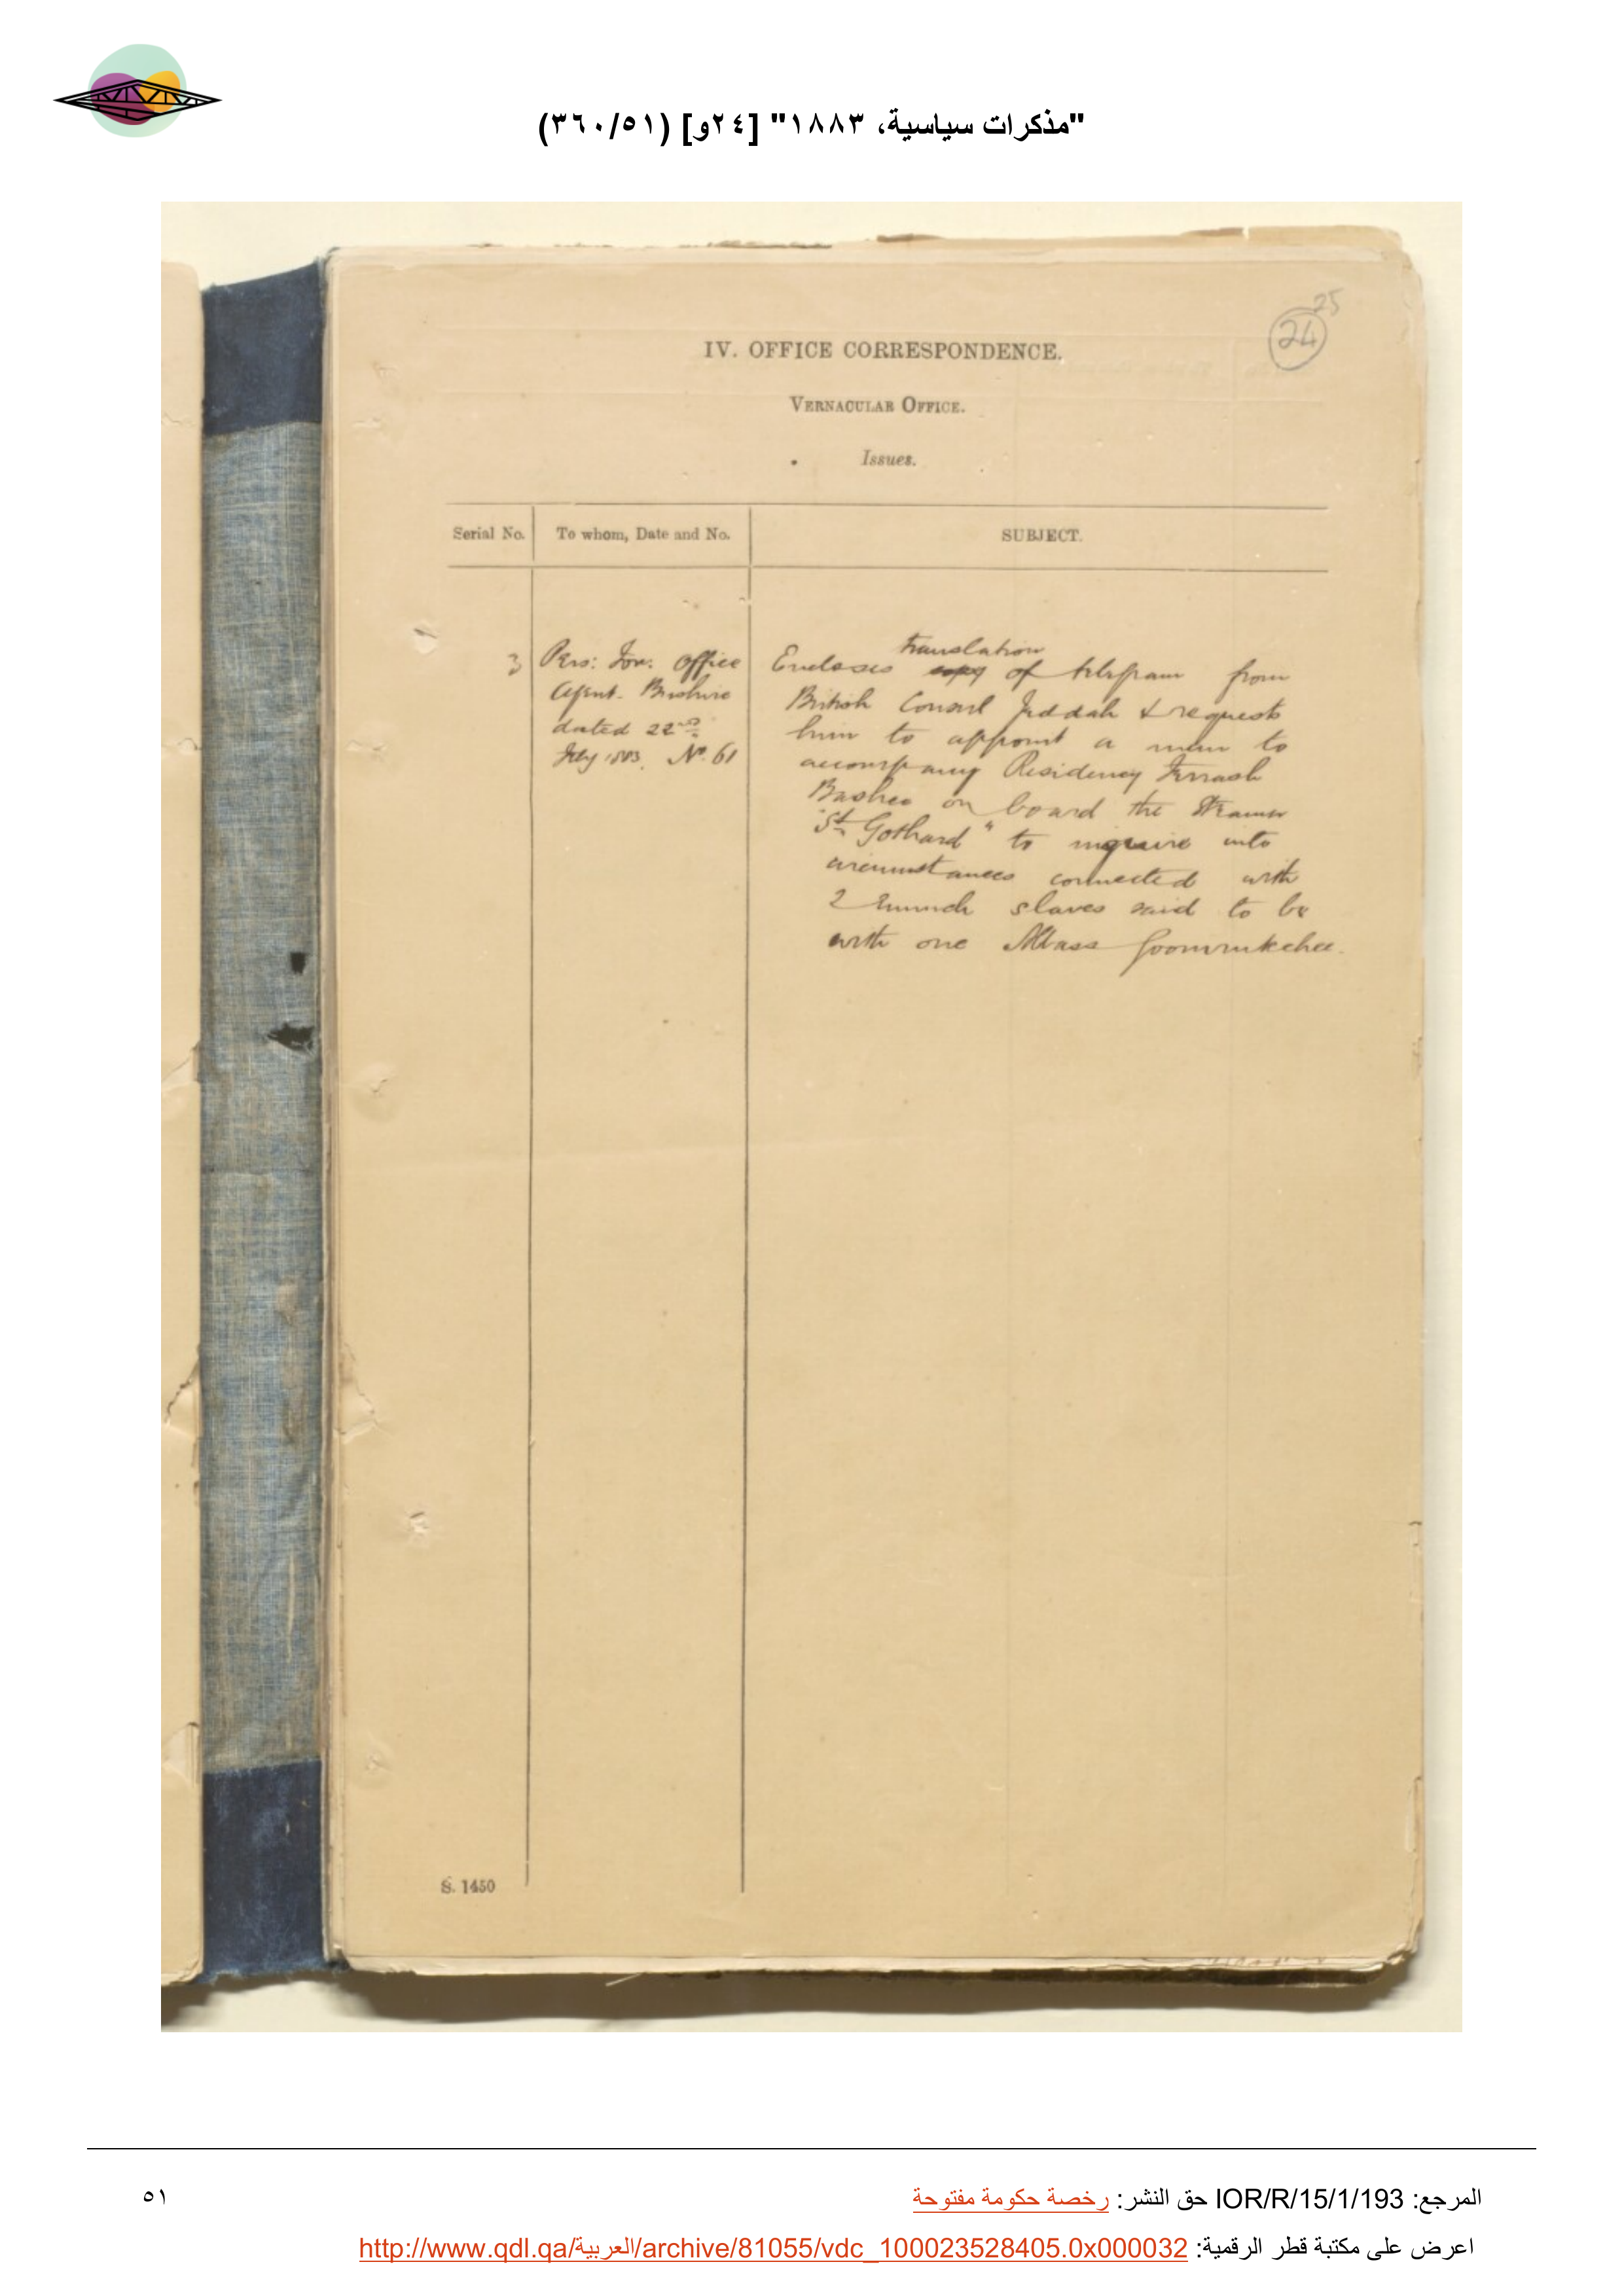 "مذكرات سياسية، ١٨٨٣" [٢٤و] (٣٦٠/٥١)
25
24
IV. OFFICE CORRESPONDENCE.
VERNACULAR OFFICE.
Issues.
Serial No. To whom, Date and No. SUBJECT.
3
Pers: For. Office
Agent. Bushire
dated 22nd
July 1883. No. 61
translation
Encloses copy of telegram from
British Consul Jeddah & requests
him to appoint a man to
accompany Residency Ferrash
Bashee on board the Steamer
"St. Gothard" to inquire into
circumstances connected with
2 Eunuch slaves said to be
with one Abbass Goomrukchee.
S. 1450
المرجع: IOR/R/15/1/193 حق النشر: رخصة حكومة مفتوحة
٥١
اعرض على مكتبة قطر الرقمية: http://www.qdl.qa/العربية/archive/81055/vdc_100023528405.0x000032